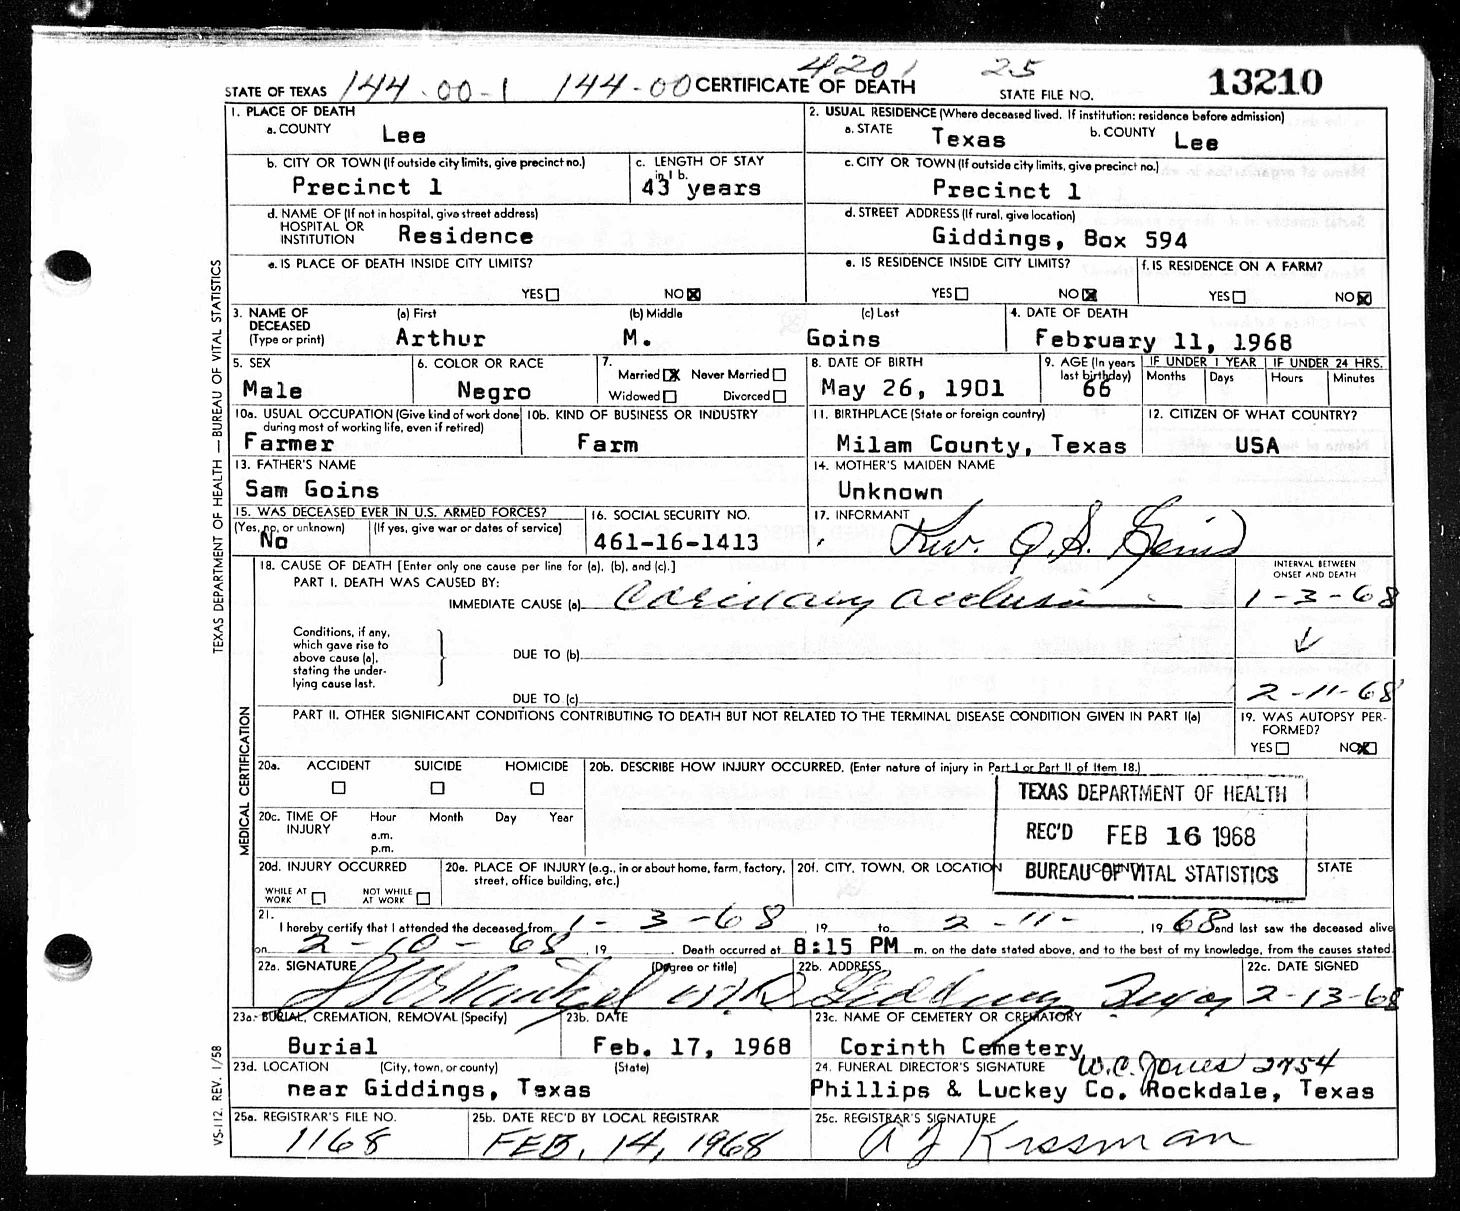 STATE OF TEXAS 144-00-1 144-00 CERTIFICATE OF DEATH 4201 25 STATE FILE NO. 13210
1. PLACE OF DEATH
a. COUNTY Lee
2. USUAL RESIDENCE (Where deceased lived. If institution: residence before admission)
a. STATE Texas b. COUNTY Lee
b. CITY OR TOWN (If outside city limits, give precinct no.) Precinct 1
c. LENGTH OF STAY in 1 b. 43 years
c. CITY OR TOWN (If outside city limits, give precinct no.) Precinct 1
d. NAME OF (If not in hospital, give street address) HOSPITAL OR INSTITUTION Residence
d. STREET ADDRESS (If rural, give location) Giddings, Box 594
e. IS PLACE OF DEATH INSIDE CITY LIMITS? YES NO X
e. IS RESIDENCE INSIDE CITY LIMITS? YES NO X
f. IS RESIDENCE ON A FARM? YES NO X
3. NAME OF DECEASED (Type or print) (a) First Arthur (b) Middle M. (c) Last Goins
4. DATE OF DEATH February 11, 1968
5. SEX Male
6. COLOR OR RACE Negro
7. Married X Never Married Widowed Divorced
8. DATE OF BIRTH May 26, 1901
9. AGE (In years last birthday) 66
IF UNDER 1 YEAR Months Days
IF UNDER 24 HRS. Hours Minutes
10a. USUAL OCCUPATION (Give kind of work done during most of working life, even if retired) Farmer
10b. KIND OF BUSINESS OR INDUSTRY Farm
11. BIRTHPLACE (State or foreign country) Milam County, Texas
12. CITIZEN OF WHAT COUNTRY? USA
13. FATHER'S NAME Sam Goins
14. MOTHER'S MAIDEN NAME Unknown
15. WAS DECEASED EVER IN U.S. ARMED FORCES? (Yes, no, or unknown) No (If yes, give war or dates of service)
16. SOCIAL SECURITY NO. 461-16-1413
17. INFORMANT Rev. O. S. Goins
18. CAUSE OF DEATH [Enter only one cause per line for (a), (b), and (c).]
INTERVAL BETWEEN ONSET AND DEATH
PART I. DEATH WAS CAUSED BY:
IMMEDIATE CAUSE (a) Coronary occlusion 1-3-68
Conditions, if any, which gave rise to above cause (a), stating the underlying cause last.
DUE TO (b)
DUE TO (c) 2-11-68
PART II. OTHER SIGNIFICANT CONDITIONS CONTRIBUTING TO DEATH BUT NOT RELATED TO THE TERMINAL DISEASE CONDITION GIVEN IN PART I(a)
19. WAS AUTOPSY PERFORMED? YES NO X
20a. ACCIDENT SUICIDE HOMICIDE
20b. DESCRIBE HOW INJURY OCCURRED. (Enter nature of injury in Part I or Part II of Item 18.)
20c. TIME OF INJURY Hour a.m. p.m. Month Day Year
TEXAS DEPARTMENT OF HEALTH
REC'D FEB 16 1968
BUREAU OF VITAL STATISTICS
20d. INJURY OCCURRED WHILE AT WORK NOT WHILE AT WORK
20e. PLACE OF INJURY (e.g., in or about home, farm, factory, street, office building, etc.)
20f. CITY, TOWN, OR LOCATION STATE
21. I hereby certify that I attended the deceased from 1-3-68, 19 to 2-11-, 19 68 and last saw the deceased alive
on 2-10-68, 19 . Death occurred at 8:15 PM m. on the date stated above, and to the best of my knowledge, from the causes stated.
22a. SIGNATURE (Degree or title) MD
22b. ADDRESS Giddings, Texas
22c. DATE SIGNED 2-13-68
23a. BURIAL, CREMATION, REMOVAL (Specify) Burial
23b. DATE Feb. 17, 1968
23c. NAME OF CEMETERY OR CREMATORY Corinth Cemetery
23d. LOCATION (City, town, or county) (State) near Giddings, Texas
24. FUNERAL DIRECTOR'S SIGNATURE W.C. Jones 2754
Phillips & Luckey Co. Rockdale, Texas
25a. REGISTRAR'S FILE NO. 1168
25b. DATE REC'D BY LOCAL REGISTRAR FEB. 14, 1968
25c. REGISTRAR'S SIGNATURE
TEXAS DEPARTMENT OF HEALTH — BUREAU OF VITAL STATISTICS
MEDICAL CERTIFICATION
VS-112. REV. 1/58